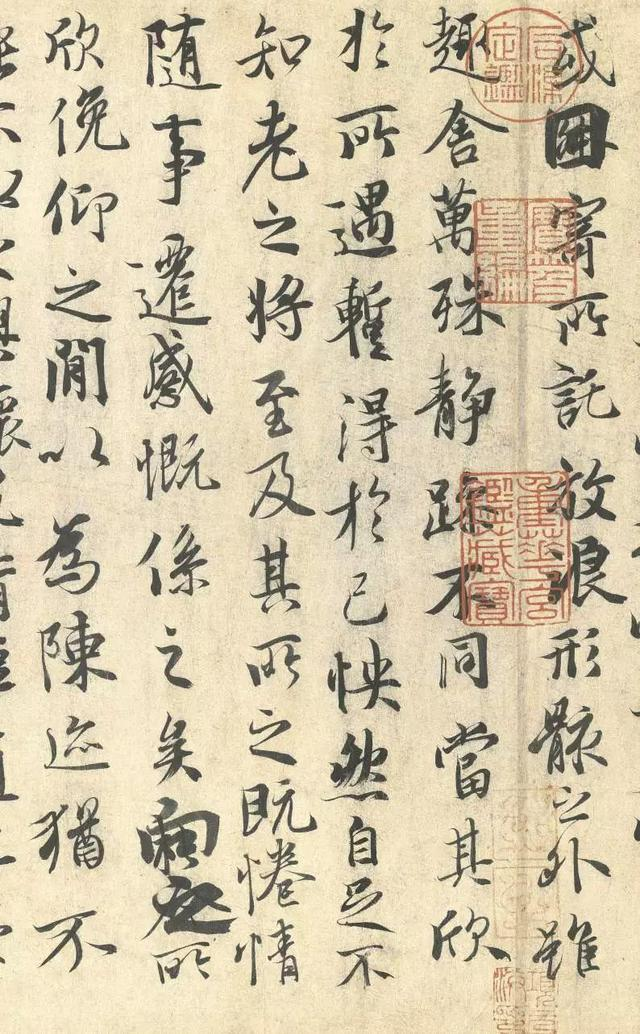 或因寄所託放浪形骸之外雖
趣舍萬殊靜躁不同當其欣
於所遇暫得於己怏然自足不
知老之將至及其所之既惓情
隨事遷感慨係之矣向之所
欣俛仰之閒以為陳迹猶不
石渠
定鑑
寶笈
重編
重華宮
鑑藏寶